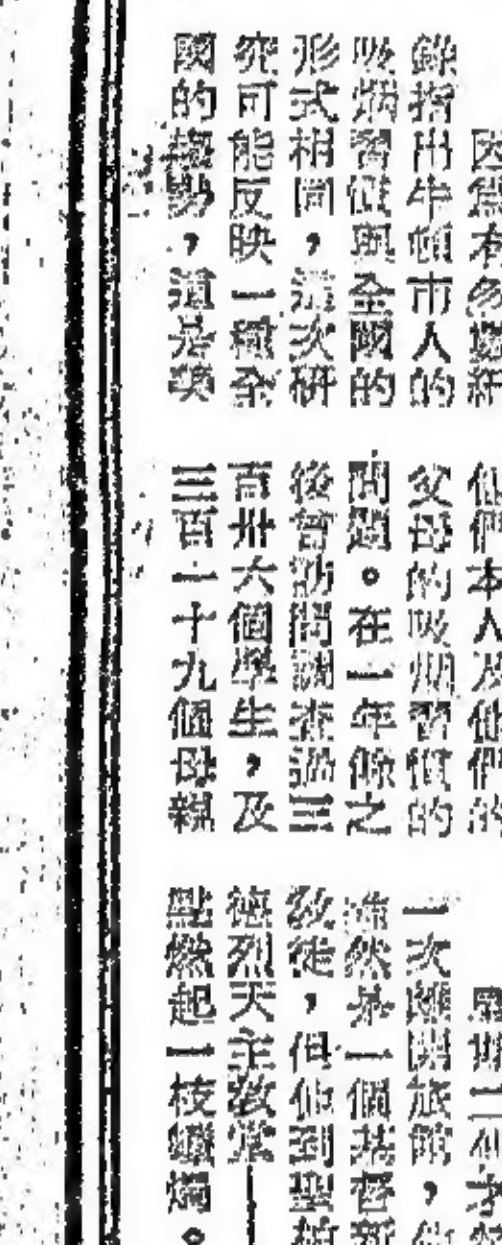 因為有勿
錄指出牛頓市人的
吸烟習慣與全國的
形式相同，這次研
究可能反映一種全
國的趨勢，這是美
他們本人及他們的
父母的吸烟習慣的
問題。在一年餘之
後曾訪問調查過三
百卅六個學生，及
三百一十九個母親
一次離開旅館，
雖然是一個基督新
教徒，但他到聖
德烈天主教堂—
點燃起一枝蠟燭。